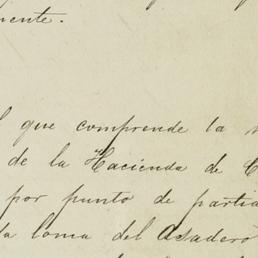 mente.
que comprende la
de la Hacienda de
por punto de partid
la loma del Asadero